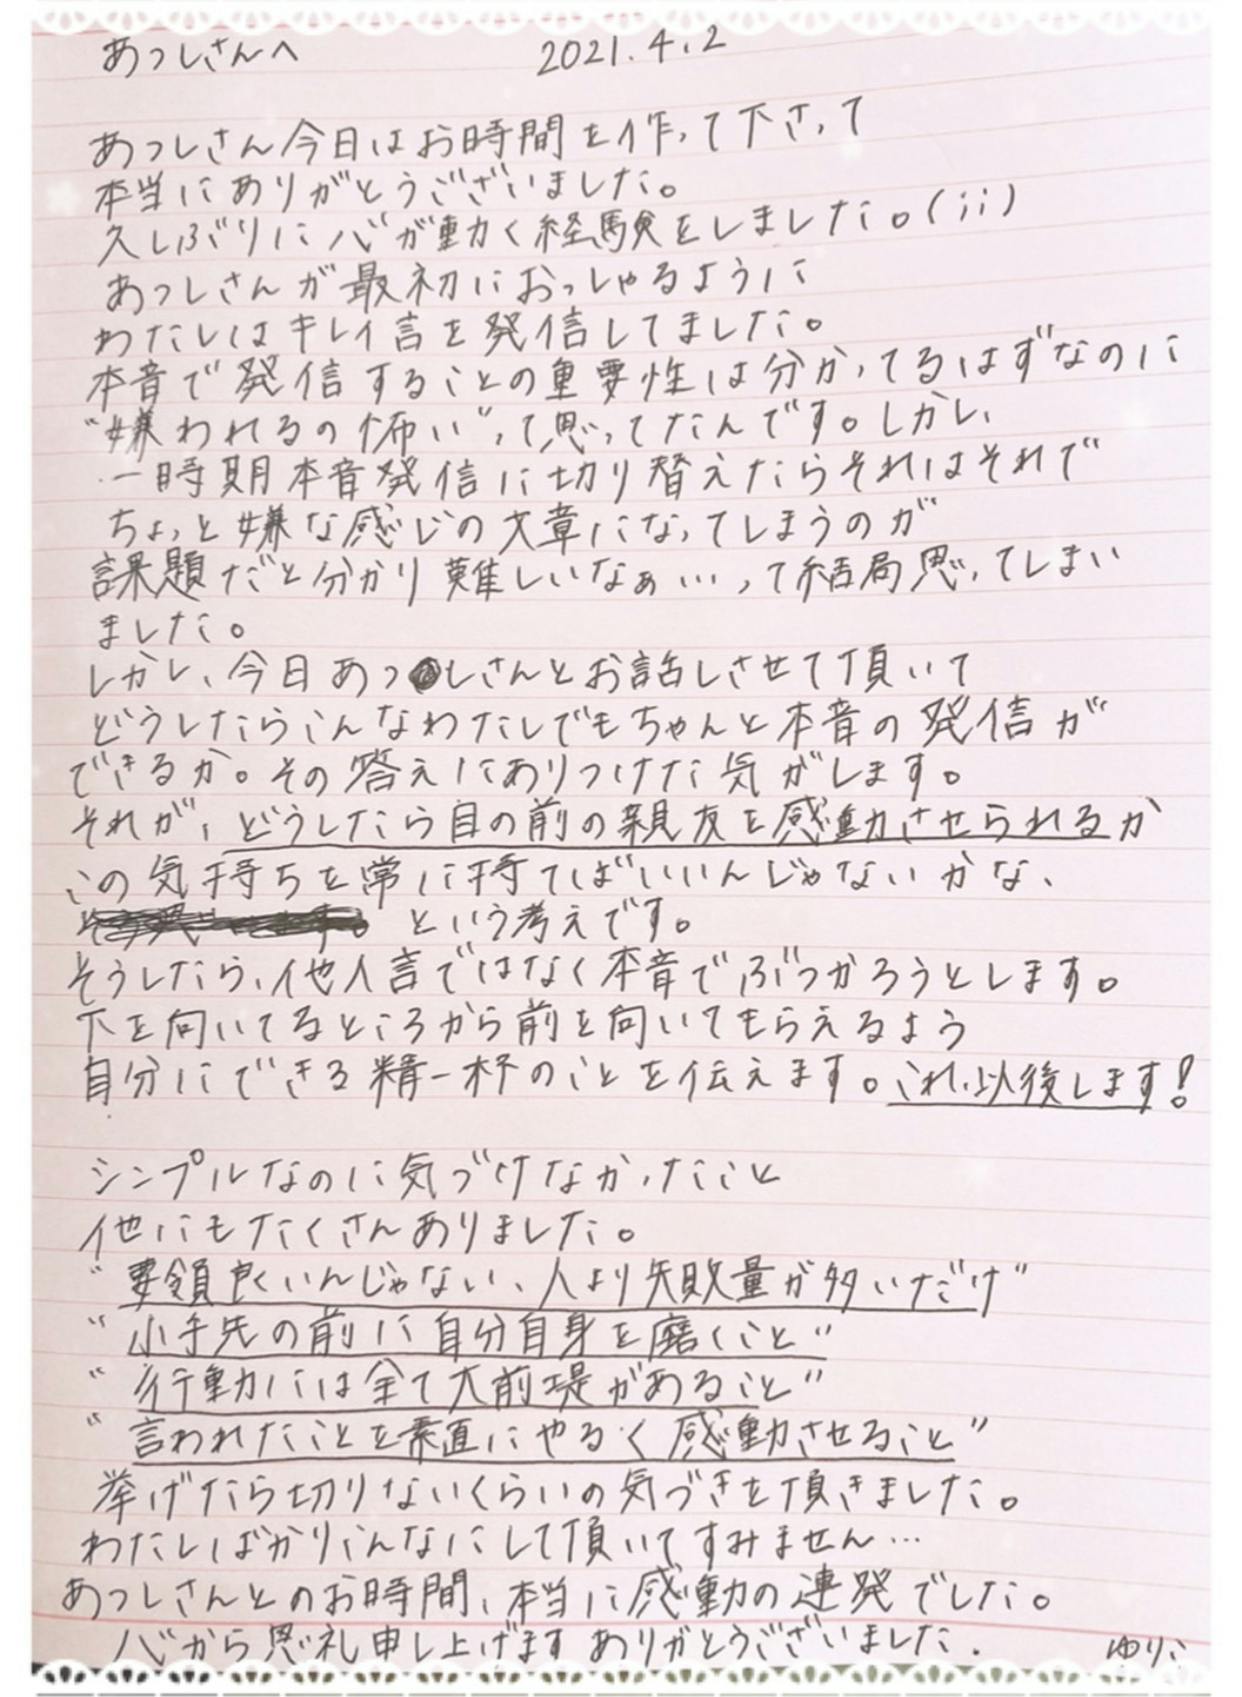 あつしさんへ 2021.4.2
あつしさん今日はお時間を作って下さって
本当にありがとうございました。
久しぶりに心が動く経験をしました。(;;)
あつしさんが最初におっしゃるように
わたしはキレイ言を発信してました。
本音で発信することの重要性は分かってるはずなのに
"嫌われるの怖い"って思ってたんです。しかし、
一時期本音発信に切り替えたらそれはそれで
ちょっと嫌な感じの文章になってしまうのが
課題だと分かり難しいなぁ…って結局思ってしまい
ました。
しかし、今日あつしさんとお話しさせて頂いて
どうしたらこんなわたしでもちゃんと本音の発信が
できるか。その答えにありつけた気がします。
それが、どうしたら目の前の親友を感動させられるか
この気持ちを常に持てばいいんじゃないかな、
という考えです。
そうしたら、他人言ではなく本音でぶつかろうとします。
下を向いてるところから前を向いてもらえるよう
自分にできる精一杯のことを伝えます。これ以後します!
シンプルなのに気づけなかったこと
他にもたくさんありました。
"要領良くいんじゃない、人より失敗量が多いだけ"
"小手先の前に自分自身を磨くこと"
"行動には全て大前堤があること"
"言われたことを素直にやるく感動させること"
挙げたら切りないくらいの気づきを頂きました。
わたしばかりこんなにして頂いてすみません…
あつしさんとのお時間、本当に感動の連発でした。
心から恩礼申し上げます ありがとうございました.
ゆりこ